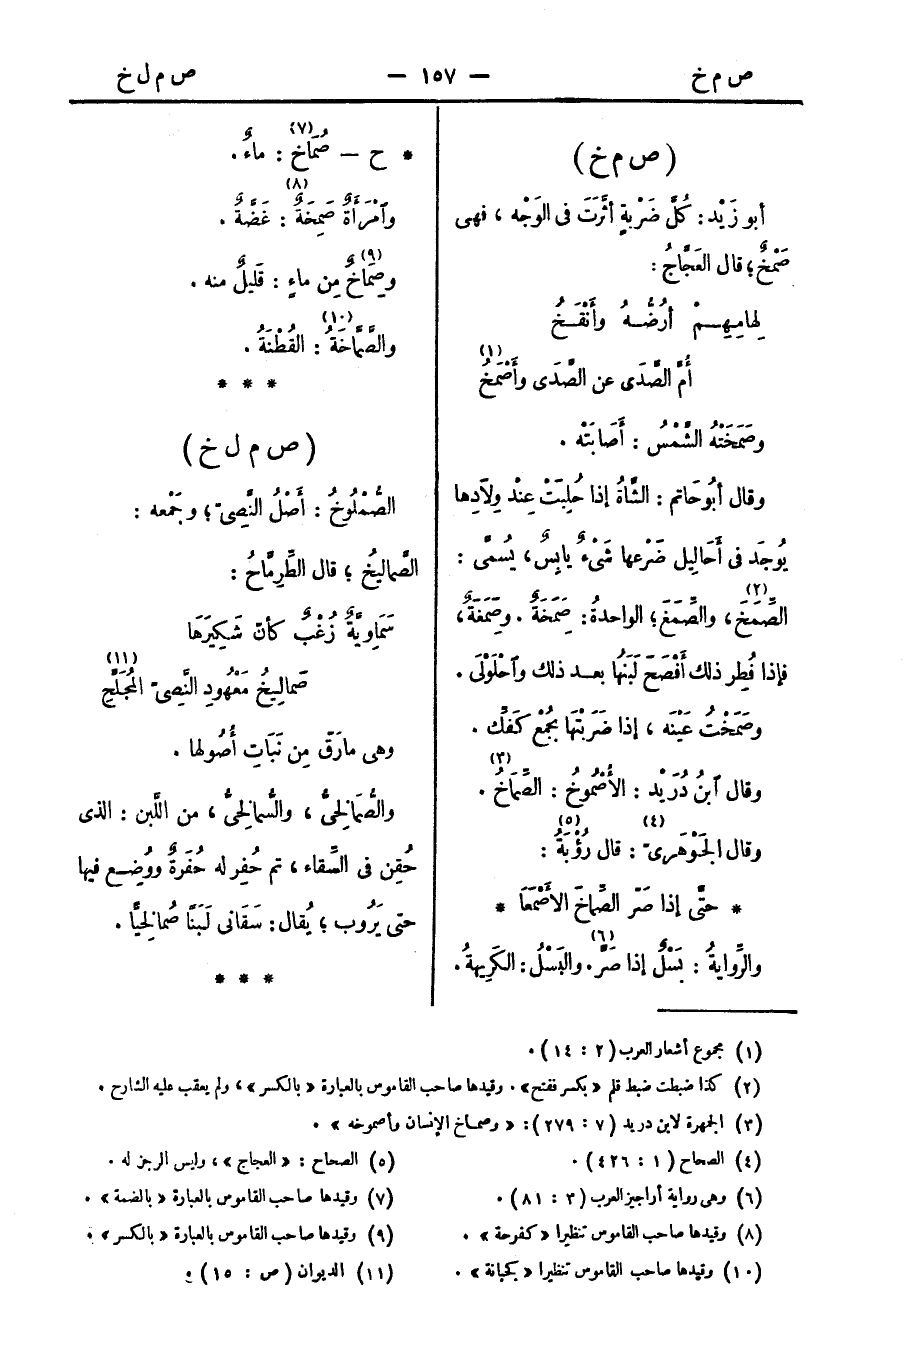 ص م خ — ١٥٧ — ص م ل خ
(ص م خ)
أبو زَيْد: كُلّ ضَرْبةٍ أثَّرَتَ فى الوَجْه ، فهى
صَمْخٌ؛ قال العَجَّاجُ:
لِهامِهِـمْ أرُضُّـهُ وأَنْقَـخُ
أُمَّ الصَّدَى عن الصَّدَى وأَصْمَخُ (١)
وصَمَخَتْهُ الشَّمْسُ : أَصَابَتْه .
وقال أبُو حَاتم : الشَّاةُ إذا حُلِبَتْ عِنْد وِلَادِها
يُوجَد فى أَحَالِيل ضَرْعها شَىْءٌ يابِسٌ، يُسمَّى :
الصِّمَخَ، والصِّمَغَ؛ الواحدةُ: صِمَخَةٌ . وصِمَغَةٌ، (٢)
فإذا فُطِر ذلك أَفْصَحَ لَبَنُها بعـد ذلك وٱحْلَوْلَى .
وصَمَخْتُ عَيْنَه ، إذا ضَرَبْتَها بجُمْع كَفّك .
وقال ٱبنُ دُرَيْد : الأُصْمُوخُ : الصِّمَاخُ . (٣)
وقال الجَوْهَرىّ (٤) : قال رُؤْبَةُ (٥) :
* حتَّى إذا صَرّ الصِّماخَ الأَصْمَعَا *
والرِّوايةُ : بَسْلٌ إذا صَرَّ (٦) . والبَسْلُ : الكَرِيهةُ .
* ح — صُمَاخ (٧) : ماءٌ .
وٱمْرأَةٌ صَمِخَةٌ (٨) : غَضَّةٌ .
وصِمَاخٌ (٩) مِن ماءٍ : قَلِيلٌ منه .
والصَّمَّاخَةُ (١٠) : القُطْنَةُ .
* * *
(ص م ل خ)
الصُّمْلُوخُ : أَصْلُ النَّصِىّ ؛ وجَمْعه :
الصَّمالِيخُ ؛ قال الطِّرِمَّاحُ :
سَمَاوِيَّةٌ زُغْبٌ كأنّ شَكِيرَهَا
صَمالِيخُ مَعْهُودِ النَّصِىّ المُجَلَّحِ (١١)
وهى مارَقّ مِن نَبَاتِ أُصُولها .
والصُّمَالِخىُّ ، والسُّمالِخىُّ ، من اللَّبن : الذى
حُقِن فى السِّقاء ، ثم حُفِر له حُفرَةٌ ووُضِـع فيها
حتى يَرُوب ؛ يُقال: سَقانى لَبَنًا صُمالِخيًّا .
* * *
(١) مجموع أشعار العرب (٢ : ١٤) .
(٢) كذا ضبطت ضبط قلم « بكسر ففتح» . وقيدها صاحب القاموس بالعبارة « بالكسر » ، ولم يعقب عليه الشارح .
(٣) الجمهرة لابن دريد (٧ : ٢٧٩) : « وصمـاخ الإنسان وأصموخه » .
(٤) الصحاح (١ : ٤٢٦) . (٥) الصحاح : « العجاج » ، وليس الرجز له .
(٦) وهى رواية أراجيز العرب (٣ : ٨١) . (٧) وقيدها صاحب القاموس بالعبارة « بالضمة » .
(٨) وقيدها صاحب القاموس تنظيرا « كفرحة » . (٩) وقيدها صاحب القاموس بالعبارة « بالكسر » .
(١٠) وقيدها صاحب القاموس تنظيرا « كجبانة » . (١١) الديوان (ص : ١٥) .